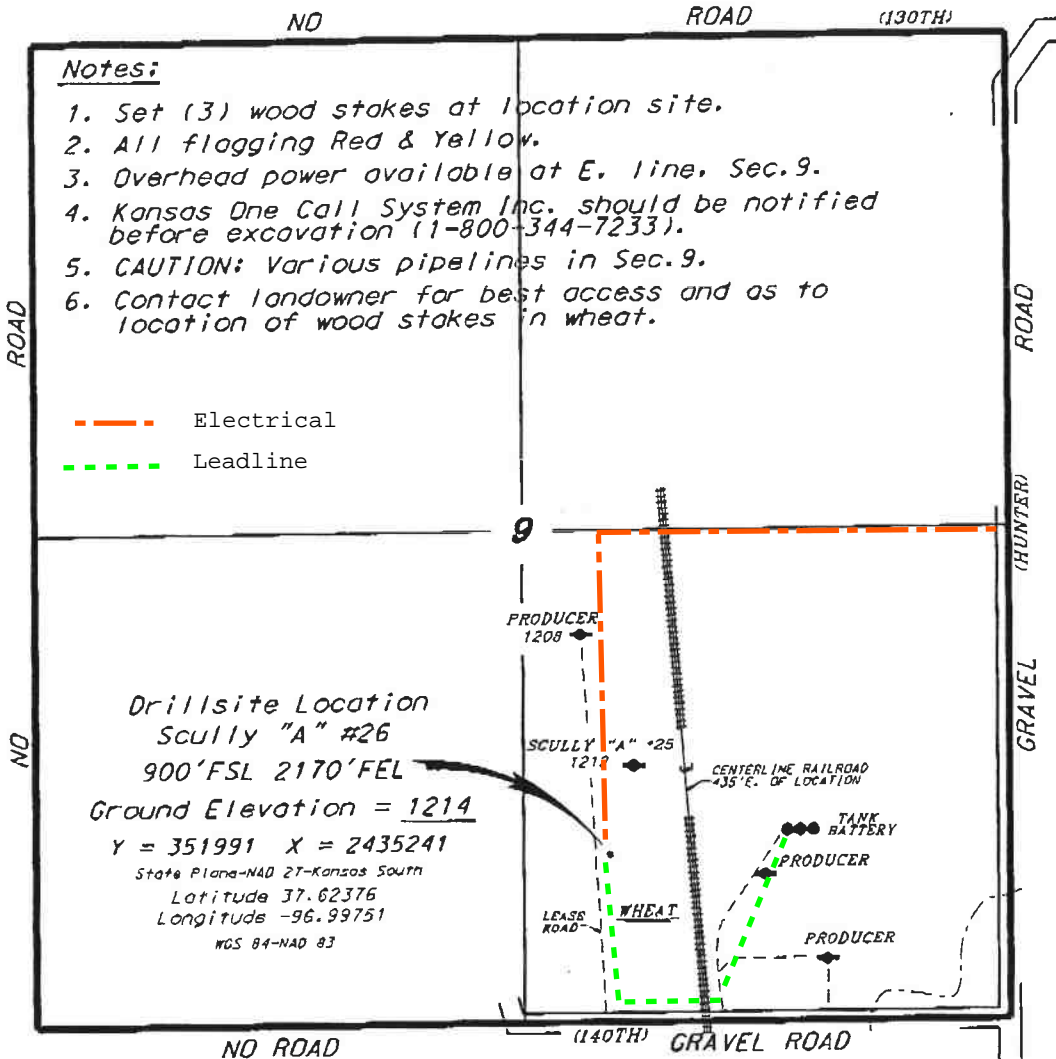 NO
ROAD
(130TH)
Notes:
1. Set (3) wood stakes at location site.
2. All flagging Red & Yellow.
3. Overhead power available at E. line, Sec.9.
4. Kansas One Call System Inc. should be notified
before excavation (1-800-344-7233).
5. CAUTION: Various pipelines in Sec.9.
6. Contact landowner for best access and as to
location of wood stakes in wheat.
ROAD
ROAD
Electrical
Leadline
(HUNTER)
9
PRODUCER
1208
Drillsite Location
Scully "A" #26
900'FSL 2170'FEL
Ground Elevation = 1214
Y = 351991 X = 2435241
State Plane-NAD 27-Kansas South
Latitude 37.62376
Longitude -96.99751
WGS 84-NAD 83
NO
GRAVEL
SCULLY "A" #25
CENTERLINE RAILROAD
435'E. OF LOCATION
TANK
BATTERY
PRODUCER
LEASE
ROAD
WHEAT
PRODUCER
NO ROAD
(140TH)
GRAVEL ROAD